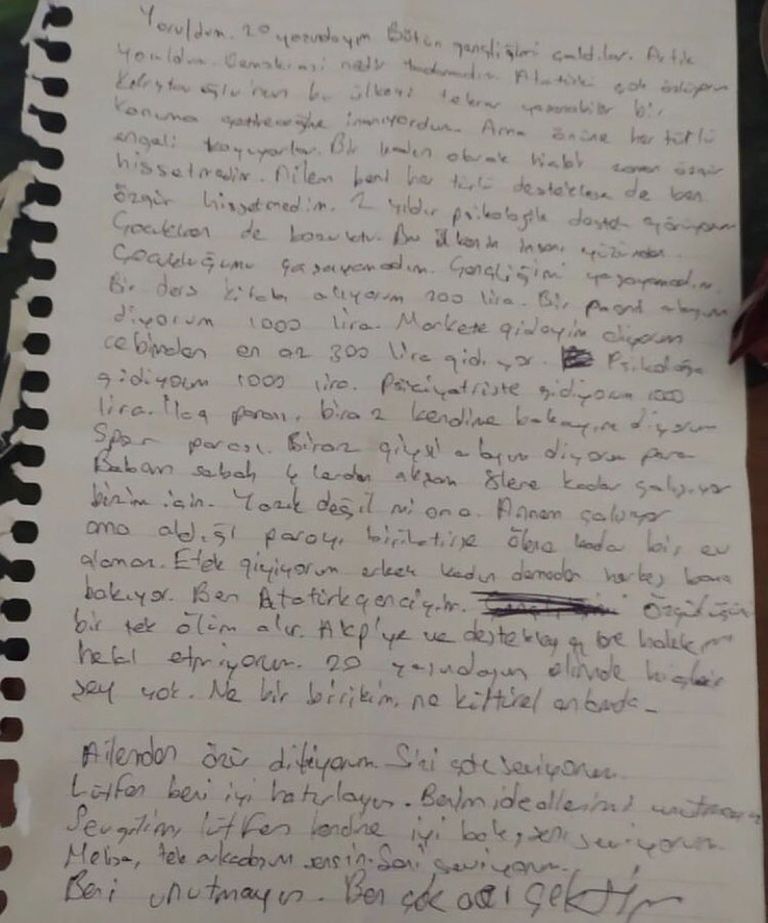 Yoruldum. 20 yaşındayım Bütün gençliğimi çaldılar. Artık
yoruldum. Demokrasi nedir tadamadım. Atatürkü çok özlüyorum
Kılıçdaroğlu'nun bu ülkeyi tekrar yaşanabilir bir
konuma getireceğine inanıyordum. Ama önüne her türlü
engeli koyuyorlar. Bir kadın olarak hiçbir zaman özgür
hissetmedim. Ailem beni her türlü desteklese de ben
özgür hissetmedim. 2 yıldır psikolojik destek görüyorum
Çocukken de bozuktu. Bu ülkenin insanı yüzünden.
Çocukluğumu yaşayamadım. Gençliğimi yaşayamadım.
Bir ders kitabı alıyorum 200 lira. Bir alayım
diyorum 1000 lira. Markete gideyim diyorum
cebimden en az 300 lira gidiyor. Psikoloğa
gidiyorum 1000 lira. Psikiyatriste gidiyorum 1000
lira. İlaç parası, biraz kendime bakayım diyorum
Spor parası. Biraz giysi alayım diyorum para
Babam sabah lerden akşam lere kadar çalışıyor
bizim için. Yazık değil mi ona. Annem çalışıyor
ama aldığı parayı biriktirse ölene kadar bir ev
alamaz. Etek giyiyorum erkek kadın demeden herkes bana
bakıyor. Ben Atatürk genciyim. Özgürlüğümü
bir tek ölüm alır. Akp'ye ve destekleyen hakkımı
helal etmiyorum. 20 yaşındayım elimde hiçbir
şey yok. Ne bir birikim, ne kültürel
Ailemden özür diliyorum. Sizi çok seviyorum.
Lütfen beni iyi hatırlayın. Benim ideallerimi unutmayın
Sevgilim, lütfen kendine iyi bak, seni seviyorum.
Melisa, tek arkadaşım sensin. Seni seviyorum.
Beni unutmayın. Ben çok acı çektim